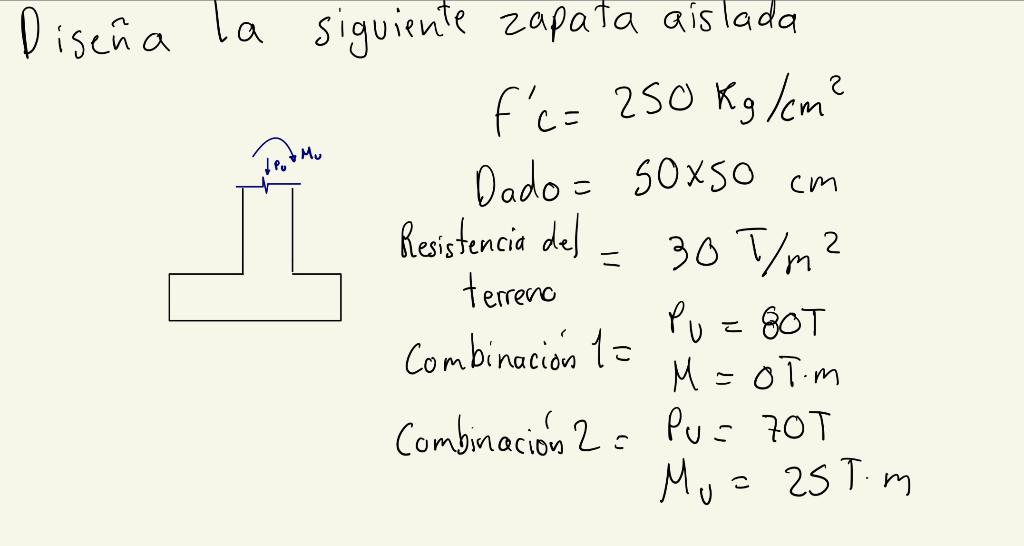 Diseña la siguiente zapata aislada
f'c = 250 Kg/cm²
Mu
Pu
Dado = 50x50 cm
Resistencia del terreno = 30 T/m²
Combinación 1 = Pu = 80T
M = 0T·m
Combinación 2 = Pu = 70T
Mu = 25 T·m